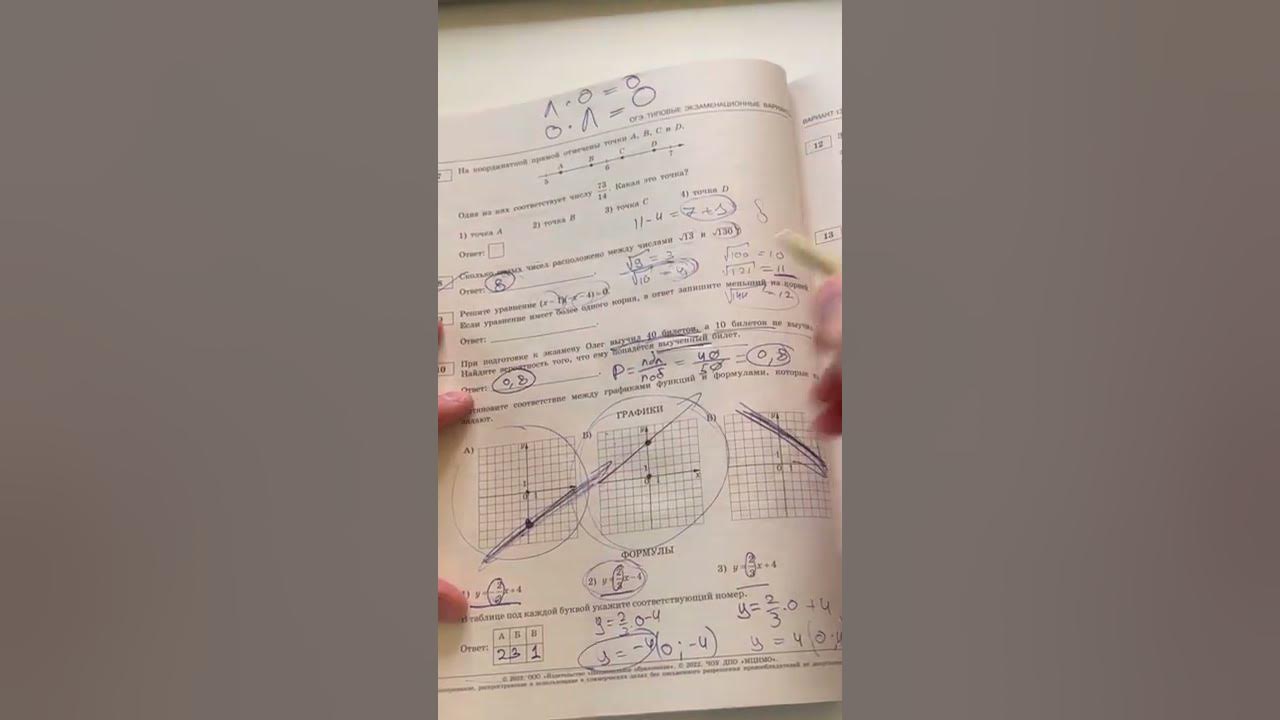 1 · 0 = 0
0 · 1 = 0
ОГЭ ТИПОВЫЕ ЭКЗАМЕНАЦИОННЫЕ
7
На координатной прямой отмечены точки A, B, C и D.
A B C D
5 6 7
Одна из них соответствует числу 73/14. Какая это точка?
1) точка A 2) точка B 3) точка C 4) точка D
11 - 4 = 7 + 1 8
Ответ:
Сколько целых чисел расположено между числами √13 и √130?
√9 = 3
√100 = 10
√121 = 11
√144 = 12
Ответ: 8
Решите уравнение (x − 1)(−x − 4) = 0.
Если уравнение имеет более одного корня, в ответ запишите меньший из корней.
Ответ:
10
При подготовке к экзамену Олег выучил 40 билетов, а 10 билетов не
Найдите вероятность того, что ему попадётся выученный билет.
P = = 40/50 = 0,8
Ответ: 0,8
соответствие между графиками функций и формулами, которые
задают.
ГРАФИКИ
А) Б) В)
y 1 0 1
y 1 0 1 x
y 1 0 1
ФОРМУЛЫ
1) y = −2/3x + 4 2) y = 2/3x − 4 3) y = 2/3x + 4
В таблице под каждой буквой укажите соответствующий номер.
А Б В
Ответ: 2 3 1
y = 2/3 · 0 − 4
y = −4 (0; −4)
y = 2/3 · 0 + 4
y = 4
© 2022. ООО «Издательство «Национальное образование», © 2022. ЧОУ ДПО «МЦНМО».
распространение и использование в коммерческих целях без письменного разрешения правообладателей не
ВАРИАНТ
12
13